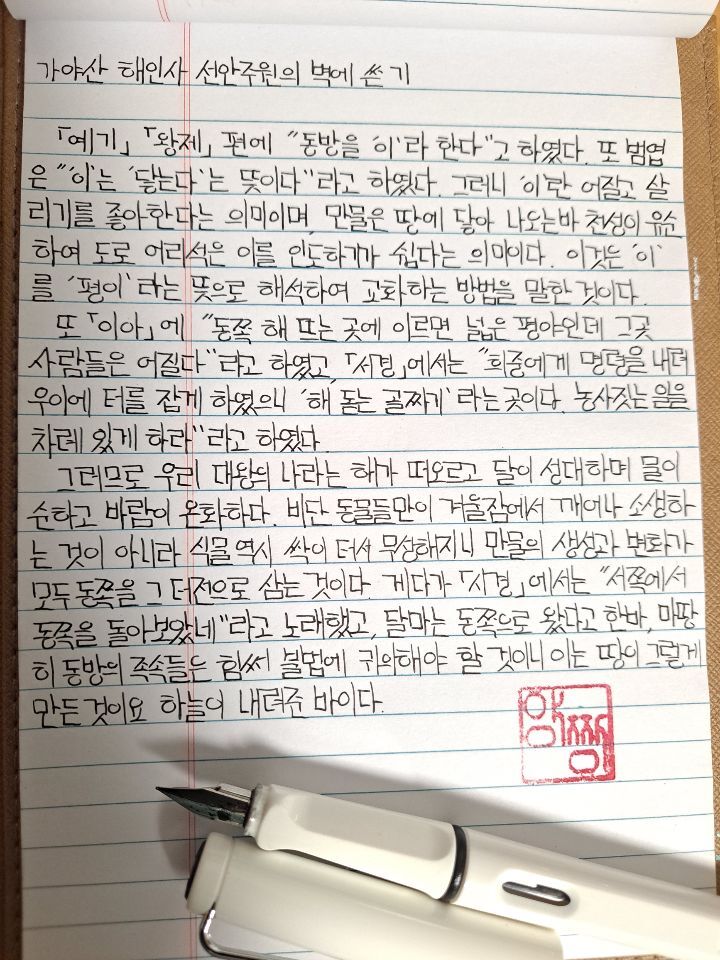 가야산 해인사 선안주원의 벽에 쓴 기
「예기」「왕제」편에 "동방을 '이'라 한다"고 하였다. 또 범엽
은 "'이'는 '닿는다'는 뜻이다"라고 하였다. 그러니 '이'란 어질고 살
리기를 좋아한다는 의미이며, 만물은 땅에 닿아 나오는바 천성이 유순
하여 도로 어리석은 이를 인도하기가 쉽다는 의미이다. 이것은 '이'
를 '평이'라는 뜻으로 해석하여 교화하는 방법을 말한 것이다.
또「이아」에 "동쪽 해 뜨는 곳에 이르면 넓은 평야인데 그곳
사람들은 어질다"라고 하였고,「서경」에서는 "희중에게 명령을 내려
우이에 터를 잡게 하였으니 '해 돋는 골짜기'라는 곳이다. 농사짓는 일을
차례 있게 하라"라고 하였다.
그러므로 우리 대왕의 나라는 해가 떠오르고 달이 성대하며 물이
순하고 바람이 온화하다. 비단 동물들만이 겨울잠에서 깨어나 소생하
는 것이 아니라 식물 역시 싹이 터서 무성해지니 만물의 생성과 변화가
모두 동쪽을 그 터전으로 삼는 것이다. 게다가「시경」에서는 "서쪽에서
동쪽을 돌아보았네"라고 노래했고, 달마는 동쪽으로 왔다고 한바, 마땅
히 동방의 족속들은 힘써 불법에 귀의해야 할 것이니 이는 땅이 그렇게
만든 것이요 하늘이 내려준 바이다.